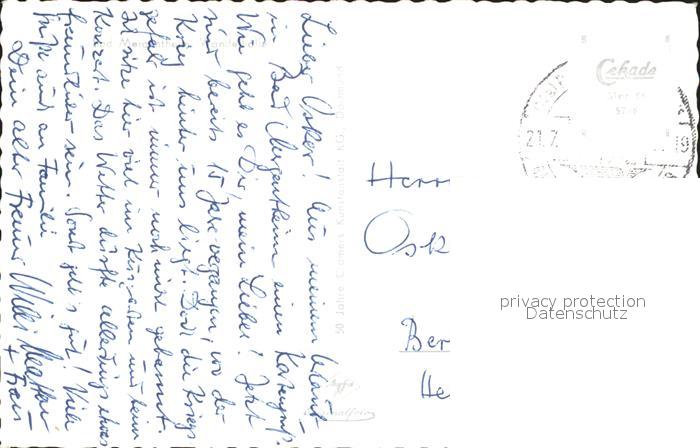 Lieber Oskar! Aus meinem Urlaub
in Bad Mergentheim einen Kartengruß.
Wie geht es Dir, mein Lieber? Jetzt
sind bereits 15 Jahre vergangen, wo der
Krieg hinter uns liegt. Doch die Kriegs
ist immer noch nicht gebannt.
sitze hier viel im Kurgarten und beim
Konzert. Das Wetter dürfte allerdings etwas
freundlicher sein. Sonst geht's gut! Viele
Grüße auch an Familie
Dein alter Freund Willi
+ Frau
Bad Mergentheim
50 Jahre Cramers Kunstanstalt KG., Dortmund
Herrn
Osk
Ber
He
Cekade
21.7.
19
privacy protection
Datenschutz